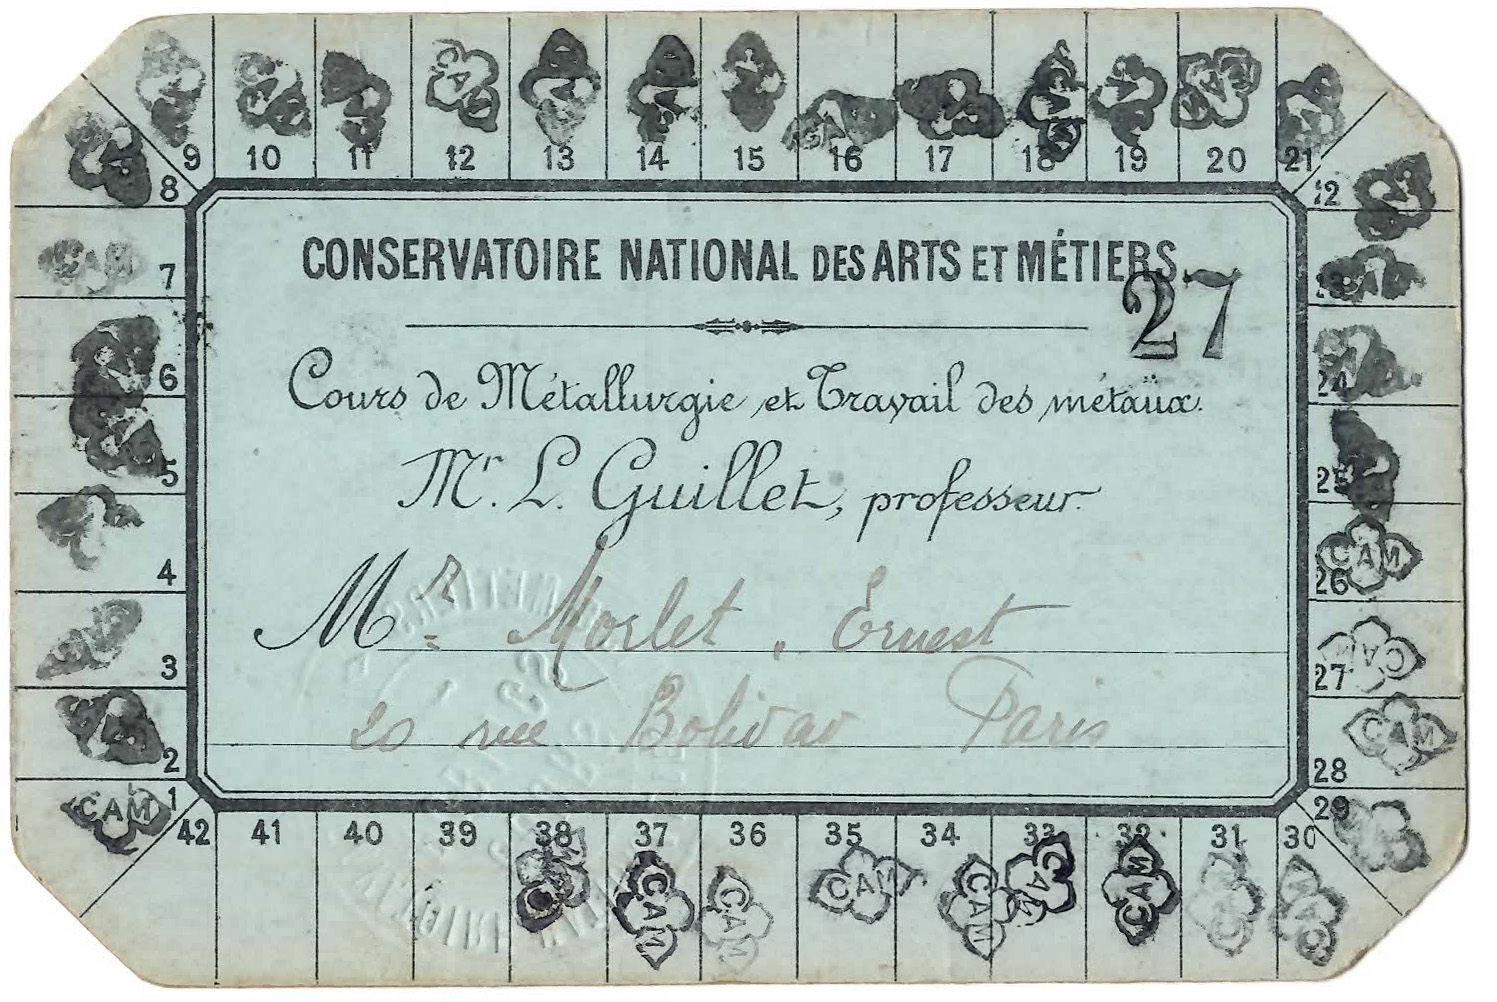 CONSERVATOIRE NATIONAL DES ARTS ET MÉTIERS
27
Cours de Métallurgie et Travail des métaux.
Mr. L. Guillet, professeur.
Mr Morlet, Ernest
20 rue Bolivar Paris
9 10 11 12 13 14 15 16 17 18 19 20 21
8
7
6
5
4
3
2
1
22
23
24
25
26
27
28
29
42 41 40 39 38 37 36 35 34 33 32 31 30
CAM
CAM
CAM
CAM
CAM
CAM
CAM
CAM
CAM
CAM
CAM